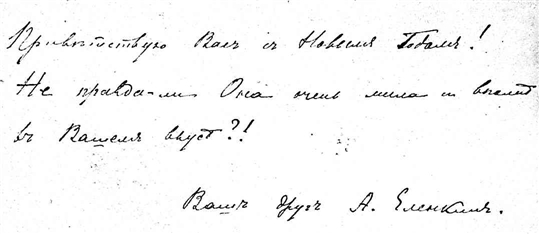 Привѣтствую Васъ съ Новымъ Годомъ!
Не правда-ли Она очень мила и вполнѣ
въ Вашемъ вкусѣ?!
Вашъ другъ А. Еленкинъ.